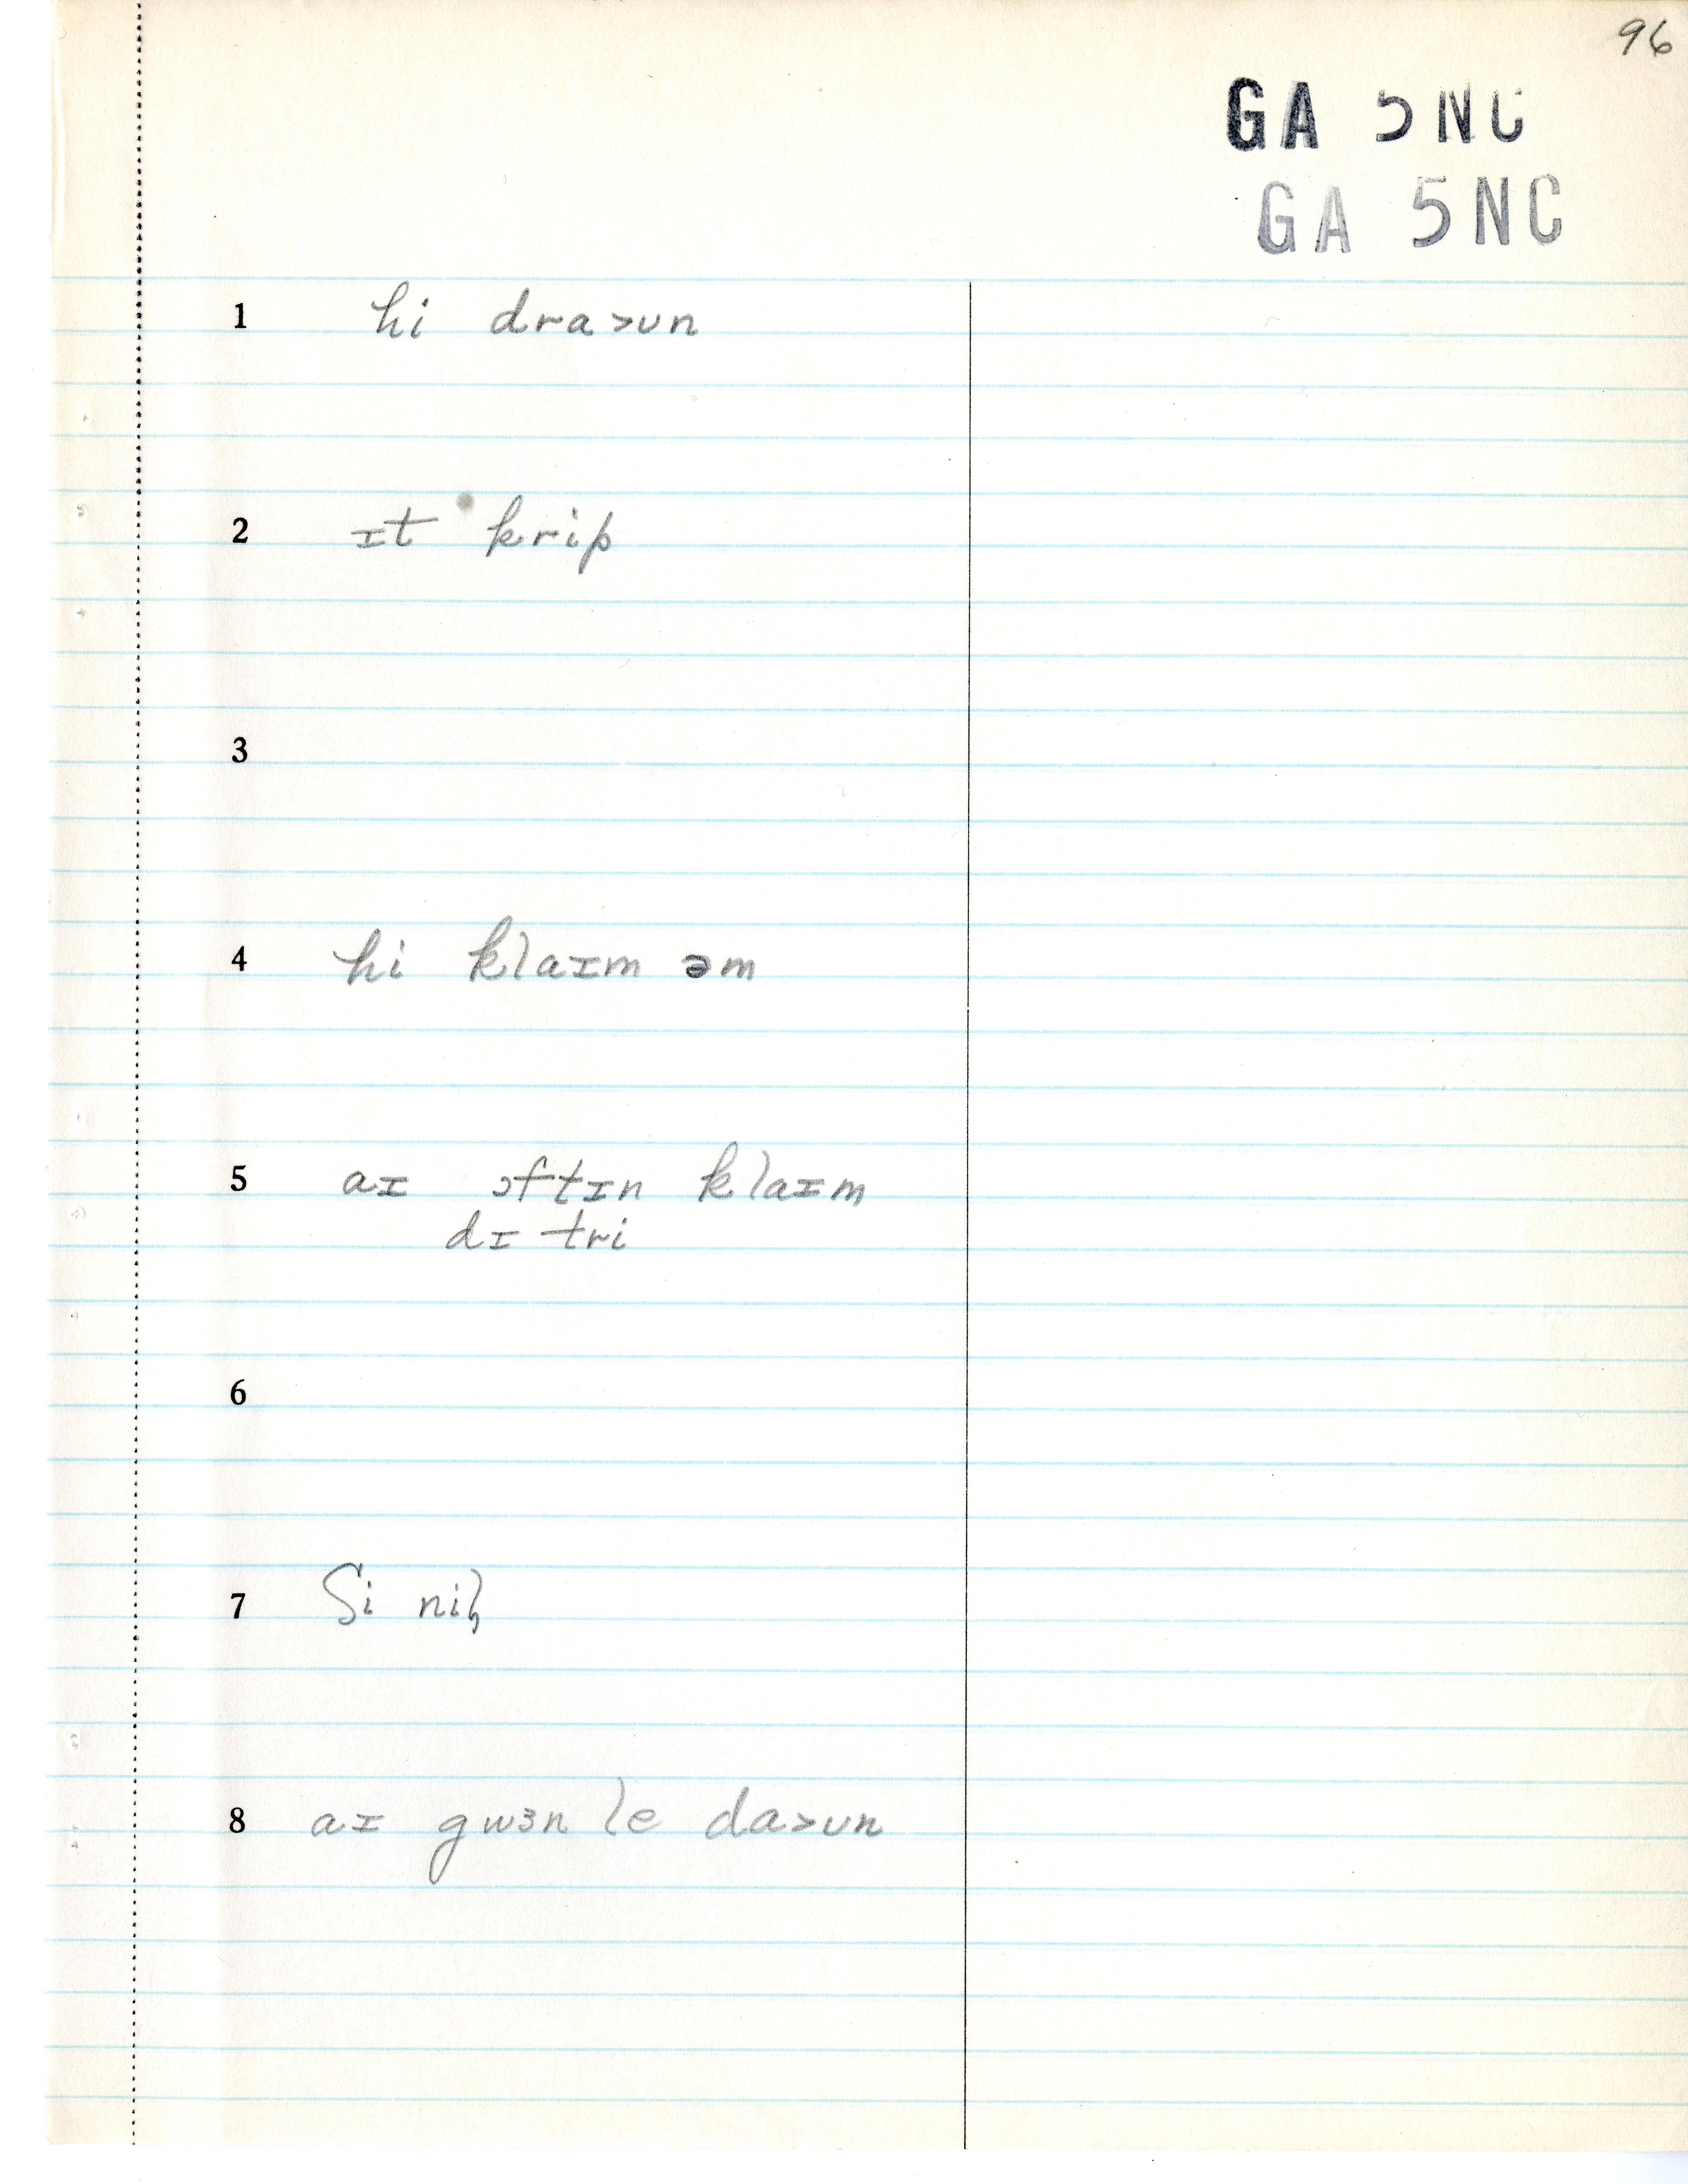 96
GA 5NC
GA 5NC
1 hi dra>ʊn
2 ɪt krip
3
4 hi klaɪm əm
5 aɪ ɔftɪn klaɪm
dɪ tri
6
7 ʃi nil
8 aɪ gwɜn le da>ʊn